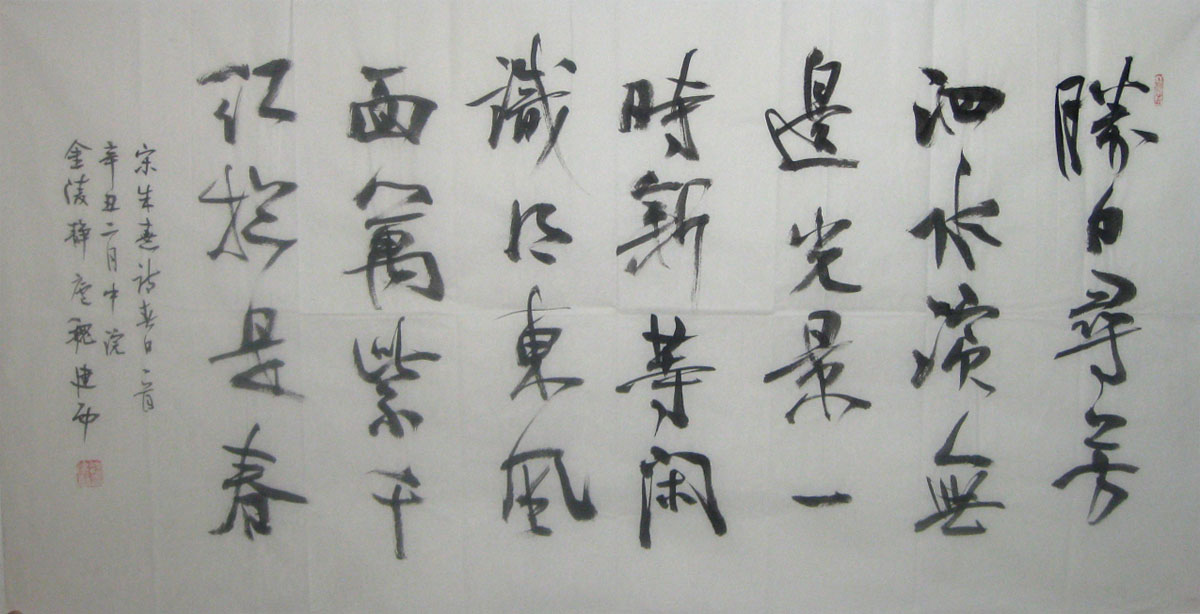 勝日尋芳
泗水濱無
邊光景一
時新等閑
識得東風
面萬紫千
紅総是春
宋朱熹詩春日一首
辛丑二月中浣
金陵静廬魏建